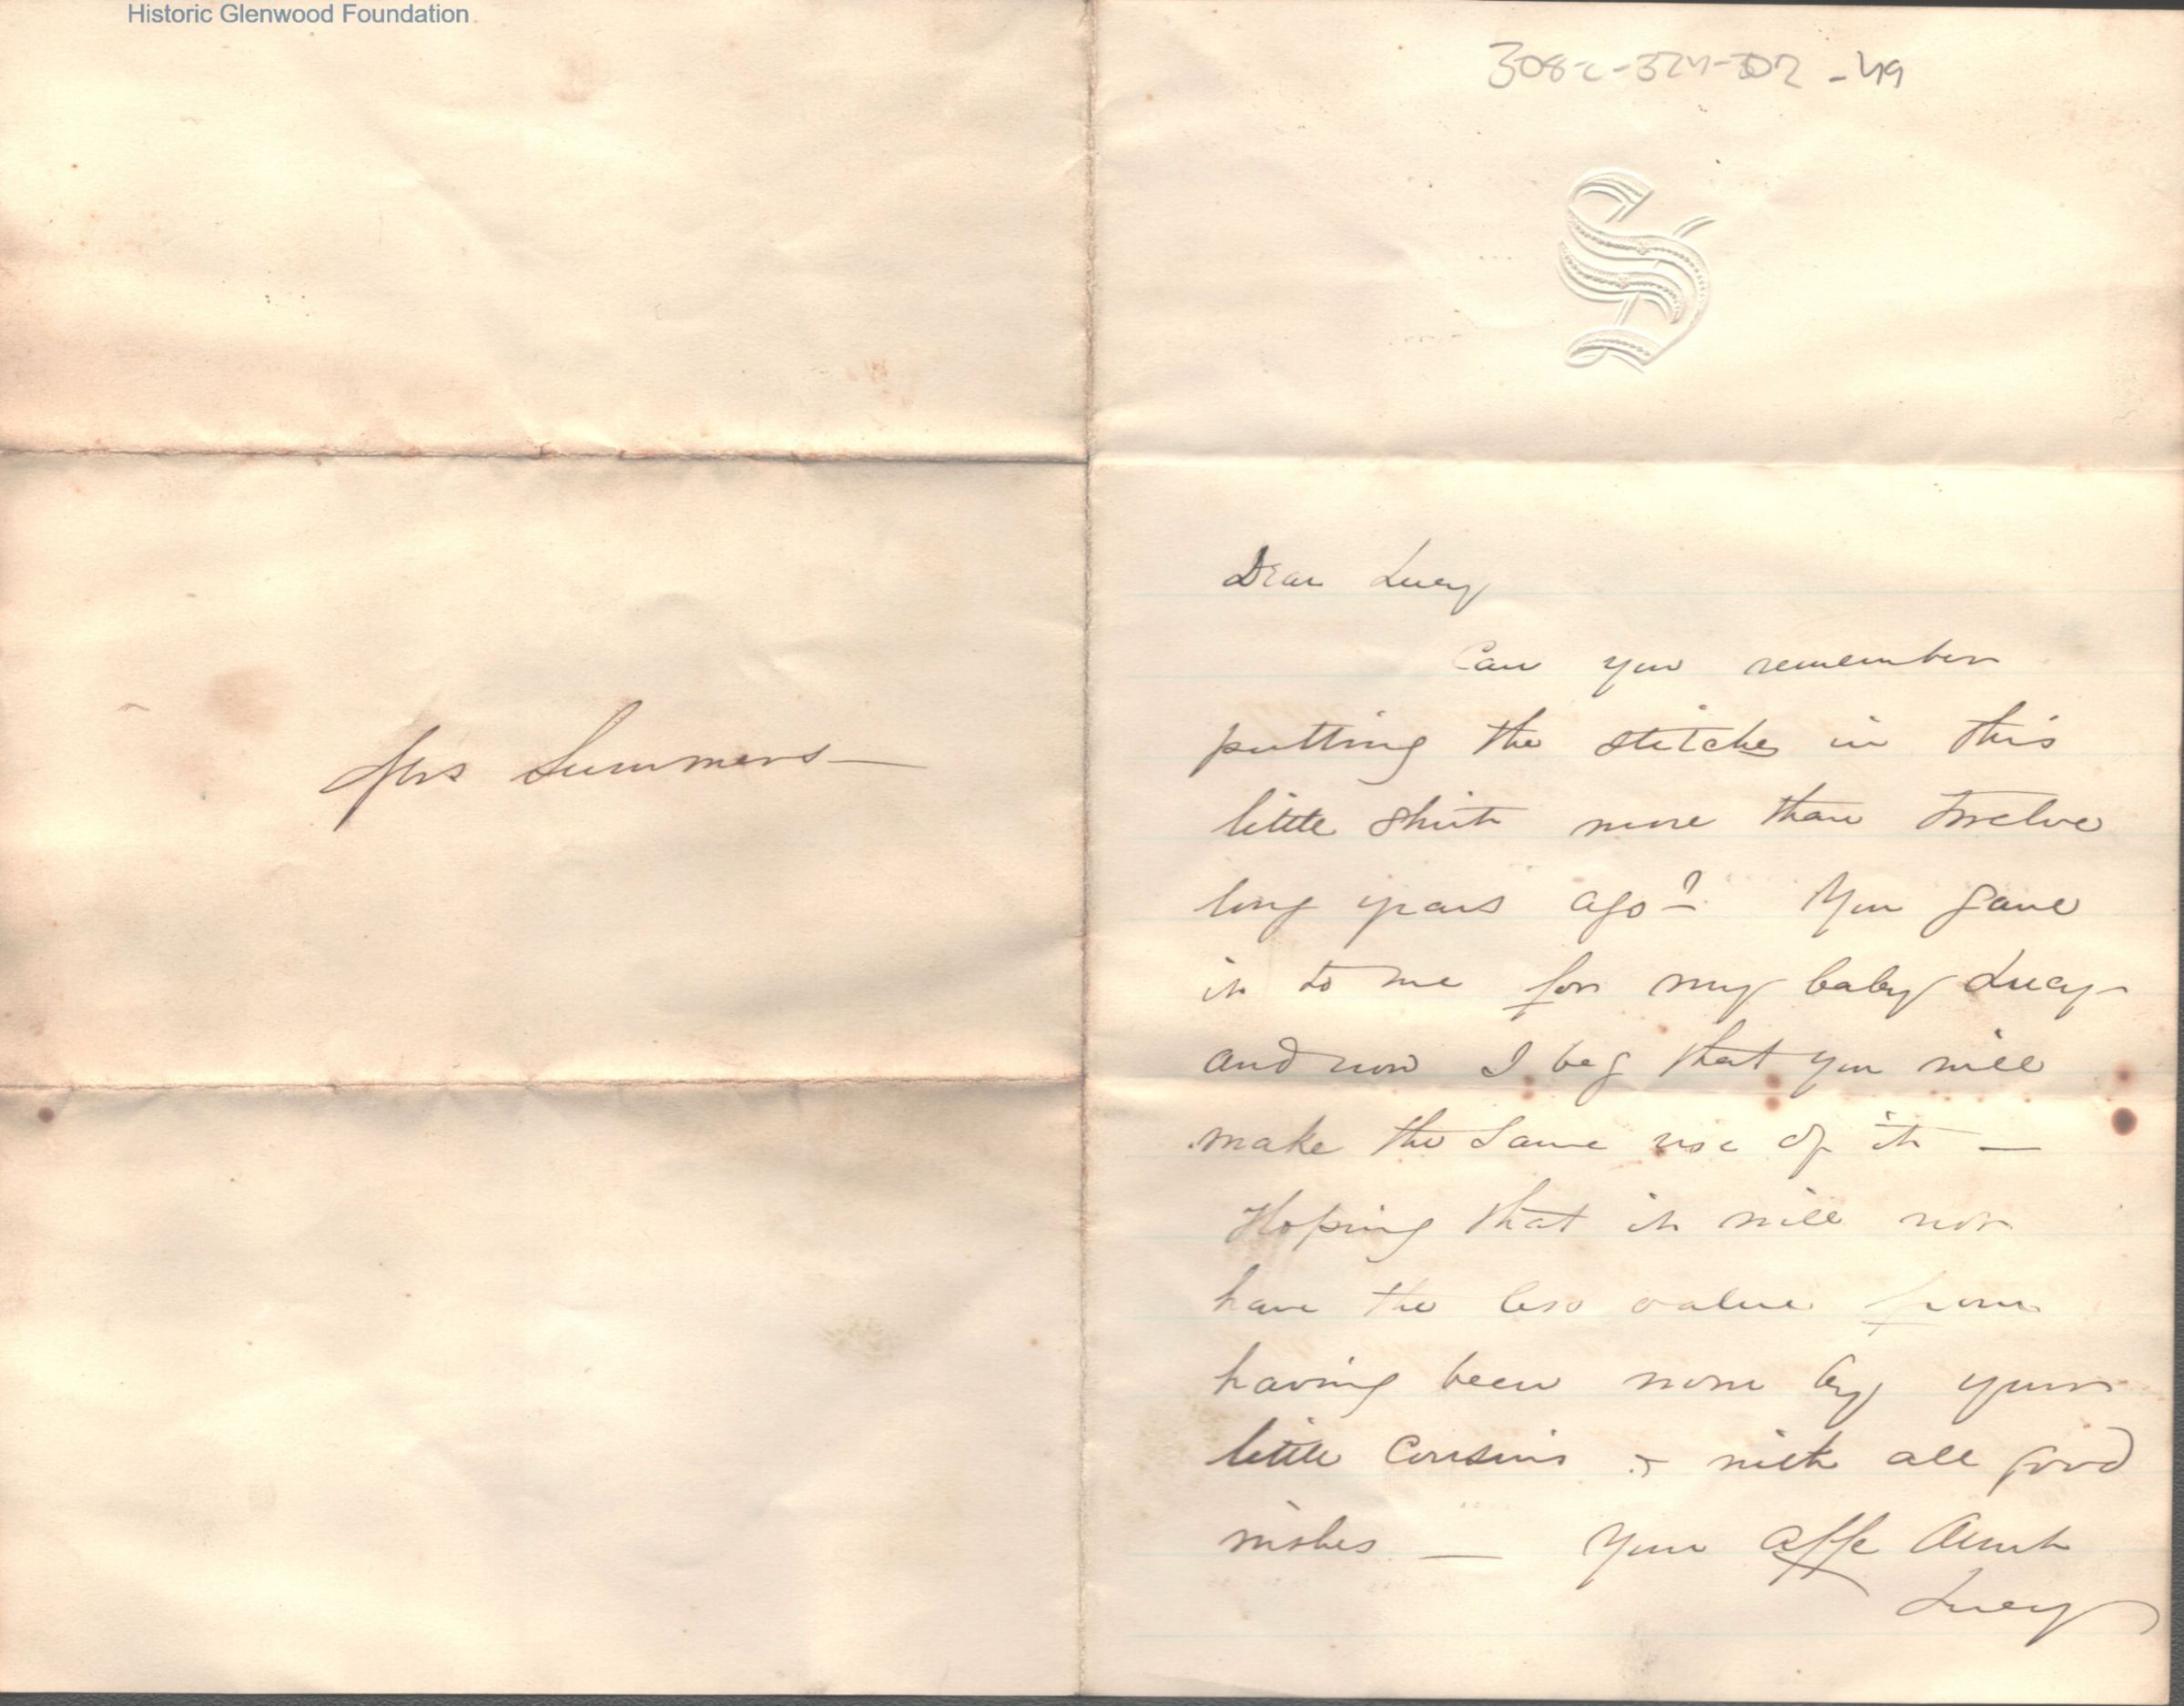 Historic Glenwood Foundation
Mrs Summers—
308-c-324-D2-49
S
Dear Lucy
Can you remember
putting the stitches in this
little shirt more than twelve
long years ago? You gave
it to me for my baby Lucy—
and now I beg that you will
make the same use of it —
Hoping that it will not
have the less value from
having been worn by your
little Cousins & with all good
wishes — Your affe Aunt
Lucy